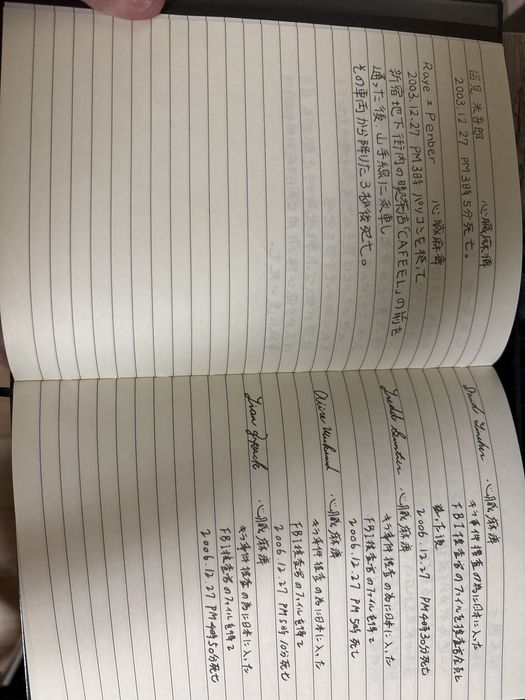 心臓麻痺
米吾郎
2003.12.27 PM3時5分死亡。
Raye=Penber 心臓麻痺
2003.12.27 PM3時 パソコンを使って
新宿地下街内の喫茶店「CAFEEL」の前を
通った後 山手線に乗車し、
その車両から降りた3秒後死亡。
心臓麻痺
キラ事件捜査の為に日本に入った
FBI捜査官のファイルを捜査官全員と
2006.12.27 PM4時30分死亡
心臓麻痺
キラ事件捜査の為に日本に入った
FBI捜査官のファイルを得て
2006.12.27 PM 5時 死亡
心臓麻痺
キラ事件捜査の為に日本に入った
FBI捜査官のファイルを得て
2006.12.27 PM5時10分死亡
心臓麻痺
キラ事件捜査の為に日本に入った
FBI捜査官のファイルを得て
2006.12.27 PM4時50分死亡